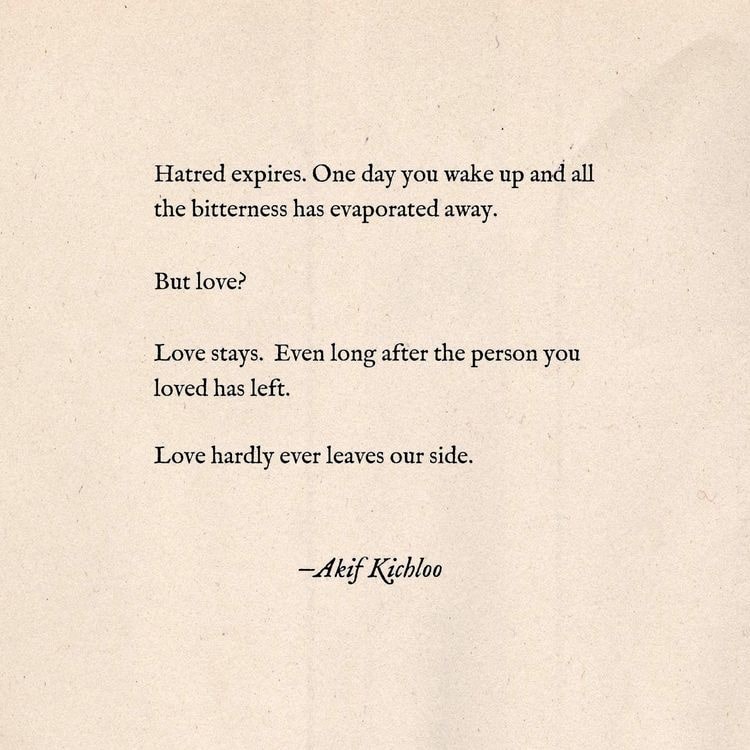 Hatred expires. One day you wake up and all
the bitterness has evaporated away.
But love?
Love stays.  Even long after the person you
loved has left.
Love hardly ever leaves our side.
—Akif Kichloo